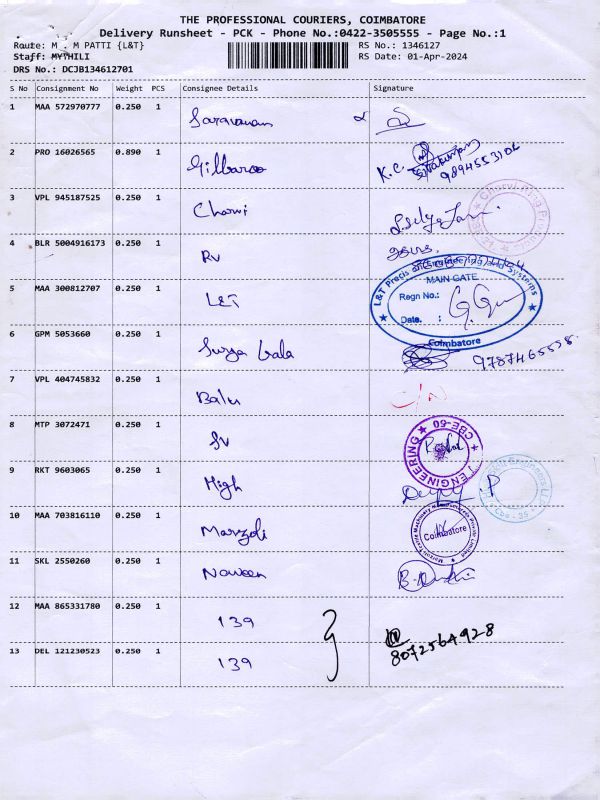 THE PROFESSIONAL COURIERS, COIMBATORE
Delivery Runsheet - PCK - Phone No.:0422-3505555 - Page No.:1
Route: M M PATTI {L&T} RS No.: 1346127
Staff: MYTHILI RS Date: 01-Apr-2024
DRS No.: DCJB134612701
S No Consignment No Weight PCS Consignee Details Signature
1 MAA 572970777 0.250 1 Saravanan
2 PRO 16026565 0.890 1 Gilbarco K.C. Sivakumar
9894553102
3 VPL 945187525 0.250 1 Charvi
4 BLR 5004916173 0.250 1 RV
5 MAA 300812707 0.250 1 L&T
L&T Precision Engineering and Systems
MAIN GATE
Regn No.:
Date. :
Coimbatore
6 GPM 5053660 0.250 1 Surya bala
7 VPL 404745832 0.250 1 Balu
8 MTP 3072471 0.250 1 SV
ENGINEERING CBE-50
9 RKT 9603065 0.250 1 High
10 MAA 703816110 0.250 1 Marzoli
Coimbatore
11 SKL 2550260 0.250 1 Naveen
12 MAA 865331780 0.250 1 139
8072564928
13 DEL 121230523 0.250 1 139